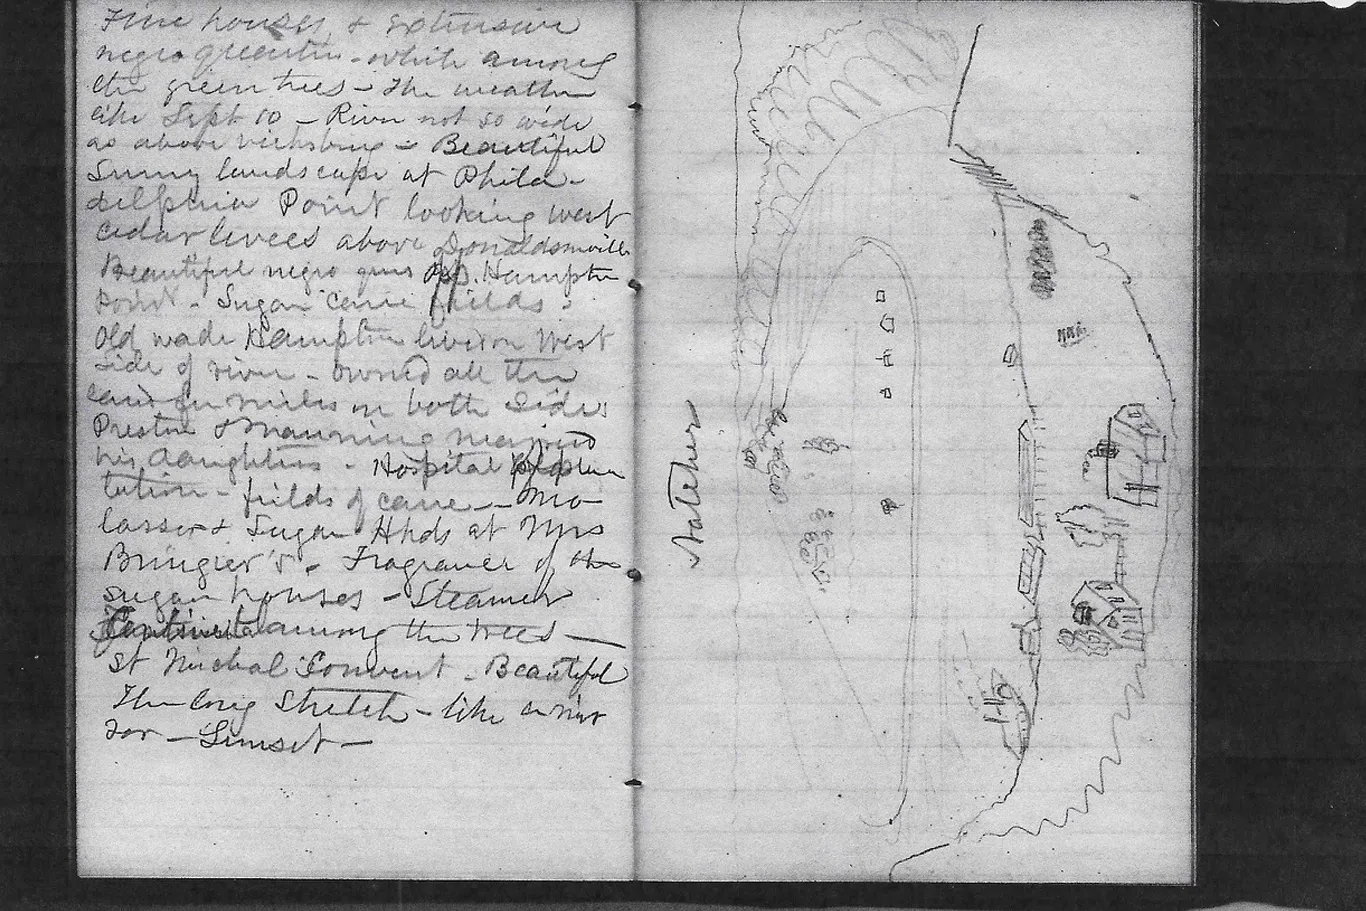 Fine houses, & extensive
negro quarters - white among
the green trees - The weather
like Sept 10 - River not so wide
as above Vicksburg - Beautiful
Sunny landscape at Phila-
delphia Point looking west
cedar levees above Donaldsonville
Beautiful negro qurs opp. Hampton
Point - Sugar cane fields -
Old Wade Hampton lived on West
side of river - owned all the
land for miles on both sides
Preston & Manning married
his daughters - Hospital plan
tation - fields of cane - Mo-
lasses & Sugar Hhds at Mrs
Bringier's - Fragrance of the
sugar houses - Steamer
among the trees -
St Michal Convent - Beautiful
The long Stretch - like a mir
ror - Sunset -
Natchez